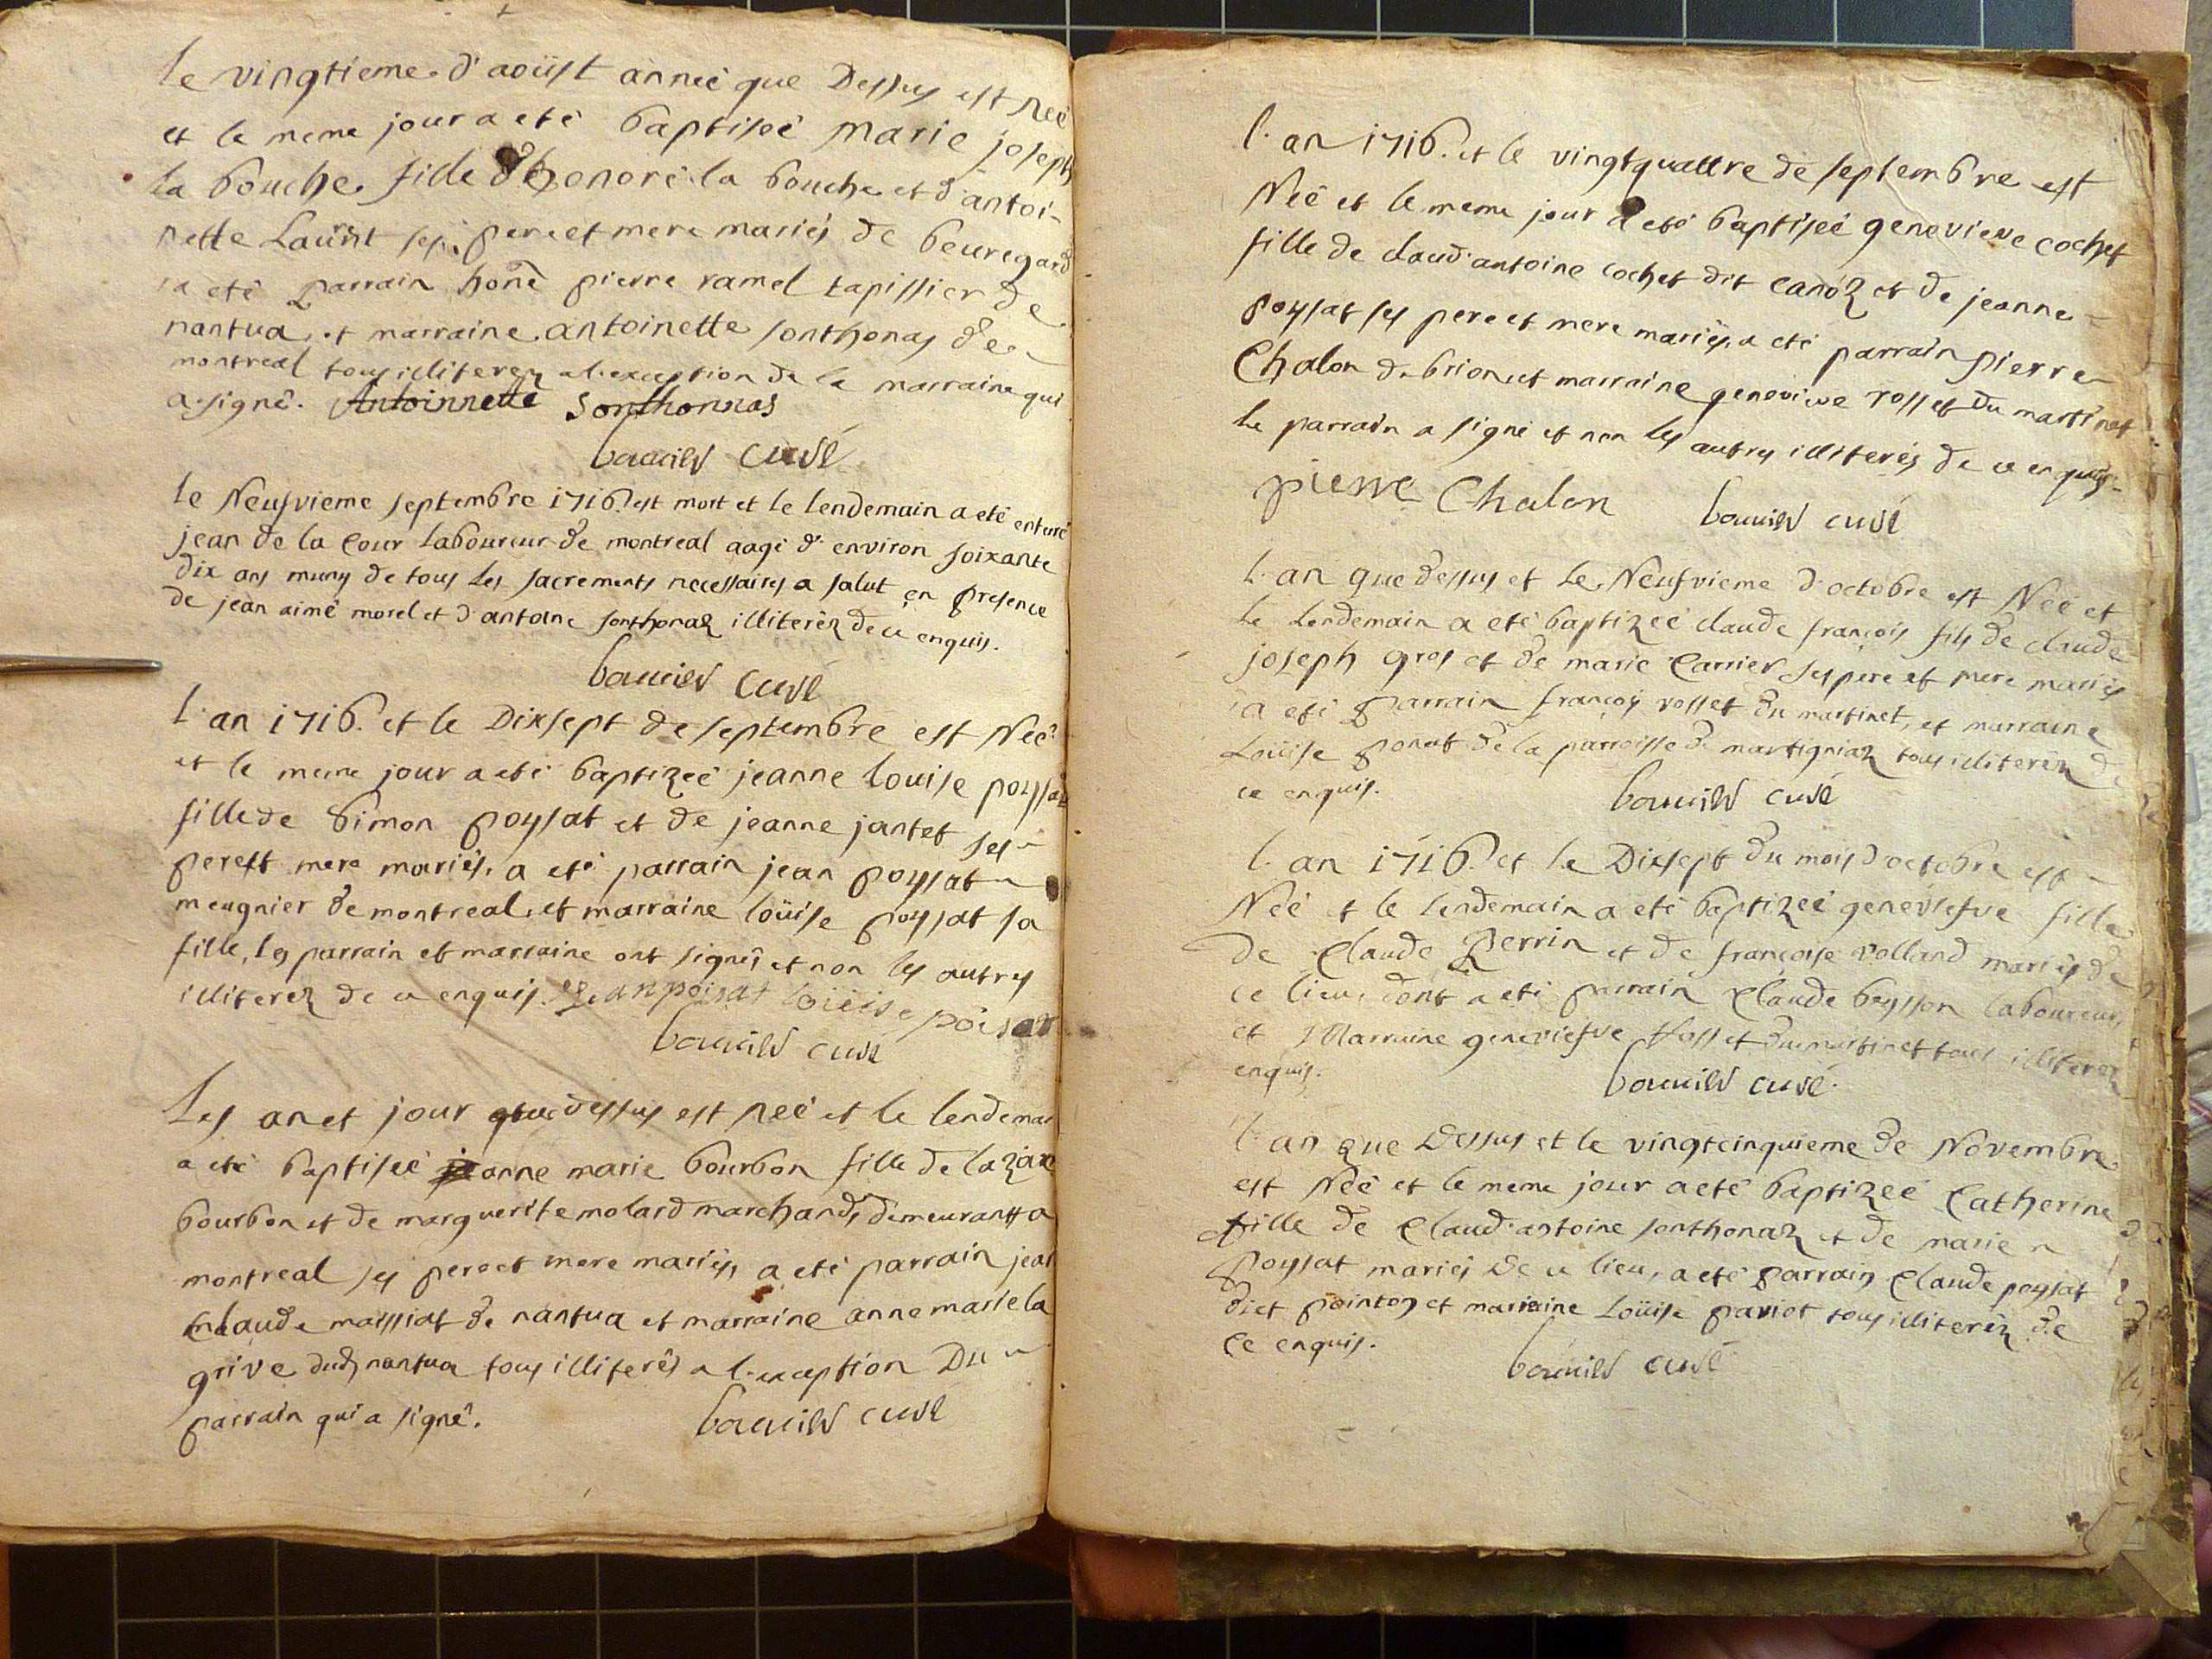 le vingtieme d'aoüst anneé que Dessus est Neé
et le meme jour a eté baptiseé marie joseph
la bouche fille d'honoré la bouche et d'antoi-
nette Laurent ses pere et mere mariés de beuregard
a eté parrain hone pierre ramel tapissier de
nantua, et marraine antoinette sonthonas de
montreal tous illiterez a l'exception de la marraine qui
a signé. Antoinnette Sonthonnas
curé
le Neufvieme septembre 1716. est mort et le lendemain a eté enterré
jean de la Cour Laboureur de montreal aagé d'environ soixante
dix ans muny de tous les sacrements necessaires a salut en presence
de jean aimé morel et d'antoine sonthonaz illiteréz de ce enquis.
curé
l'an 1716. et le Dixsept de septembre est Neé
et le meme jour a eté baptizeé jeanne louise poysat
fille de Simon poysat et de jeanne jantet ses
pere et mere mariés, a eté parrain jean poysat
meugnier de montreal, et marraine loüise poysat sa
fille, les parrain et marraine ont signé, et non les autres
illiterez de ce enquis. jean poisat loüise poisat
curé
Les an et jour que dessus est neé et le lendemai
a eté baptiseé anne marie bourbon fille de lazare
bourbon et de marguerite molard marchands demeurant a
montreal ses pere et mere mariés, a eté parrain jean
claude maissiat de nantua et marraine anne marie la
grive dud. nantua tous illiterés a l'exception Du
parrain qui a signé. curé
l'an 1716. et le vingtquattre de septembre est
Neé et le meme jour a eté baptiseé genevieve cochet
fille de claud'antoine cochet dit canoz et de jeanne
poysat ses pere et mere mariés, a eté parrain pierre
Chalon de brion, et marraine genevieve rosset du martinet
le parrain a signé et non les autres illiterés de ce enquis
pierre Chalon curé
l'an que dessus et le Neufvieme d'octobre est Neé et
le Lendemain a eté baptizeé claude françois fils de claude
joseph gros et de marie Carrier ses pere et mere mariés
a eté parrain françois rosset du martinet, et marraine
Loüise ponat de la parroisse de martigniaz tous illiteréz de
ce enquis. curé
l'an 1716. et le Dixsept du mois d'octobre est
Neé et le lendemain a eté baptizeé geneviefve fille
de Claude Perrin et de françoise rolland mariés de
ce lieu, dont a eté parrain Claude beysson laboureur,
et Marraine geneviefve Rosset du martinet tous illiterez
enquis. curé.
l'an que Dessus et le vingtcinquieme de Novembre
est Neé et le meme jour a eté baptizeé Catherine
fille de Claud'antoine sonthonaz et de marie
poysat mariés De ce lieu, a eté parrain Claude poysat
dict pointoy et marraine Loüise pariot tous illiteréz de
ce enquis.
curé